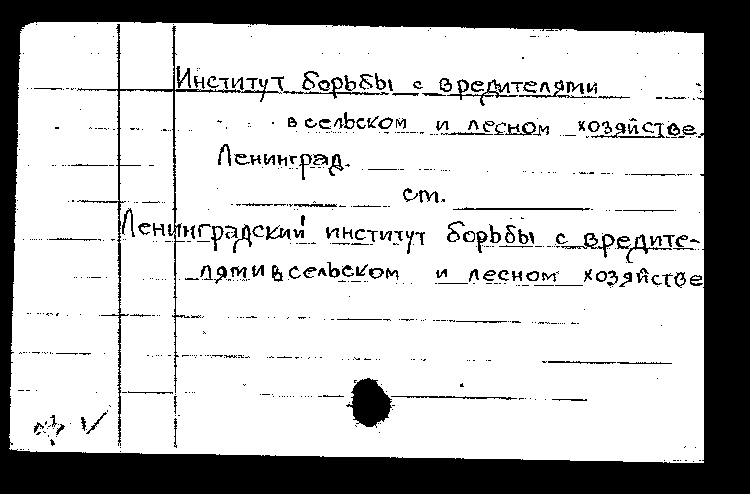 Институт борьбы с вредителями
в сельском и лесном хозяйстве.
Ленинград.
ст.
Ленинградский институт борьбы с вредите-
лями в сельском и лесном хозяйстве